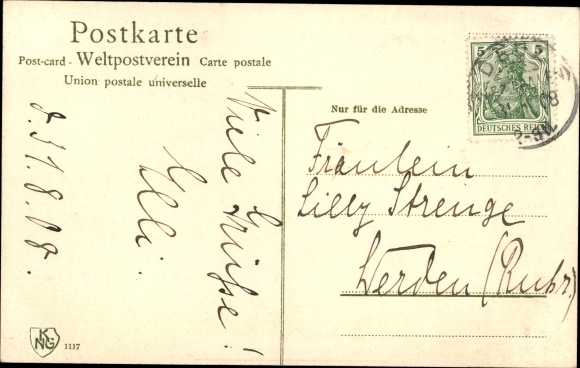 Postkarte
Post-card - Weltpostverein Carte postale
Union postale universelle
Nur für die Adresse
5 5
DEUTSCHES REICH
08
d. 31.8.08.
Viele Grüße!
Elli.
Fräulein
Lilly Strenge
Werden (Ruhr.)
KNG
1117